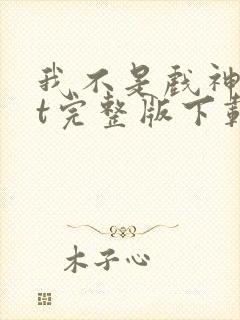 我不是戏神
t完整版下载
木子心